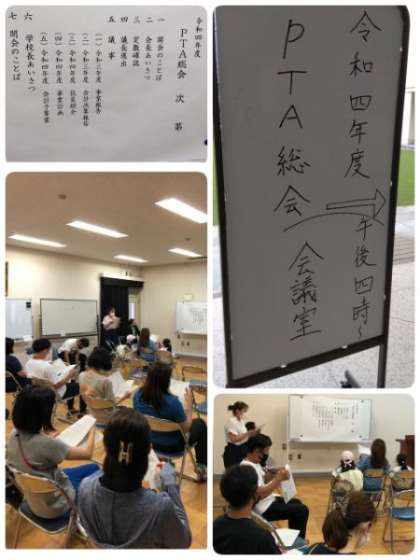 令和四年度
PTA総会 次第
一 開会のことば
二 会長あいさつ
三 定数確認
四 議長選出
五 議事
(一) 令和三年度 事業報告
(二) 令和三年度 会計決算報告
(三) 令和四年度 役員紹介
(四) 令和四年度 事業計画
(五) 令和四年度 会計予算案
六 学校長あいさつ
七 閉会のことば
令和四年度
午後四時~
PTA総会
会議室